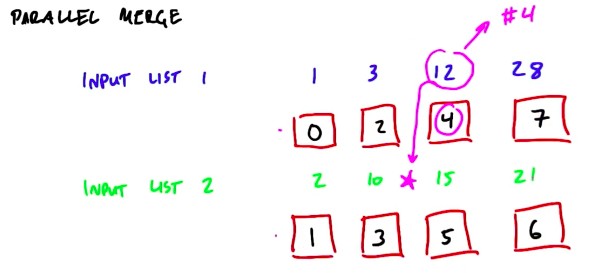 PARALLEL MERGE
#4
INPUT LIST 1 1 3 12 28
0 2 4 7
INPUT LIST 2 2 10 * 15 21
1 3 5 6